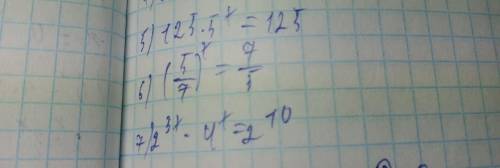 5) 125 · 5^x = 125
6) (5/7)^x = 7/5
7) 2^3x · 4^x = 2^10